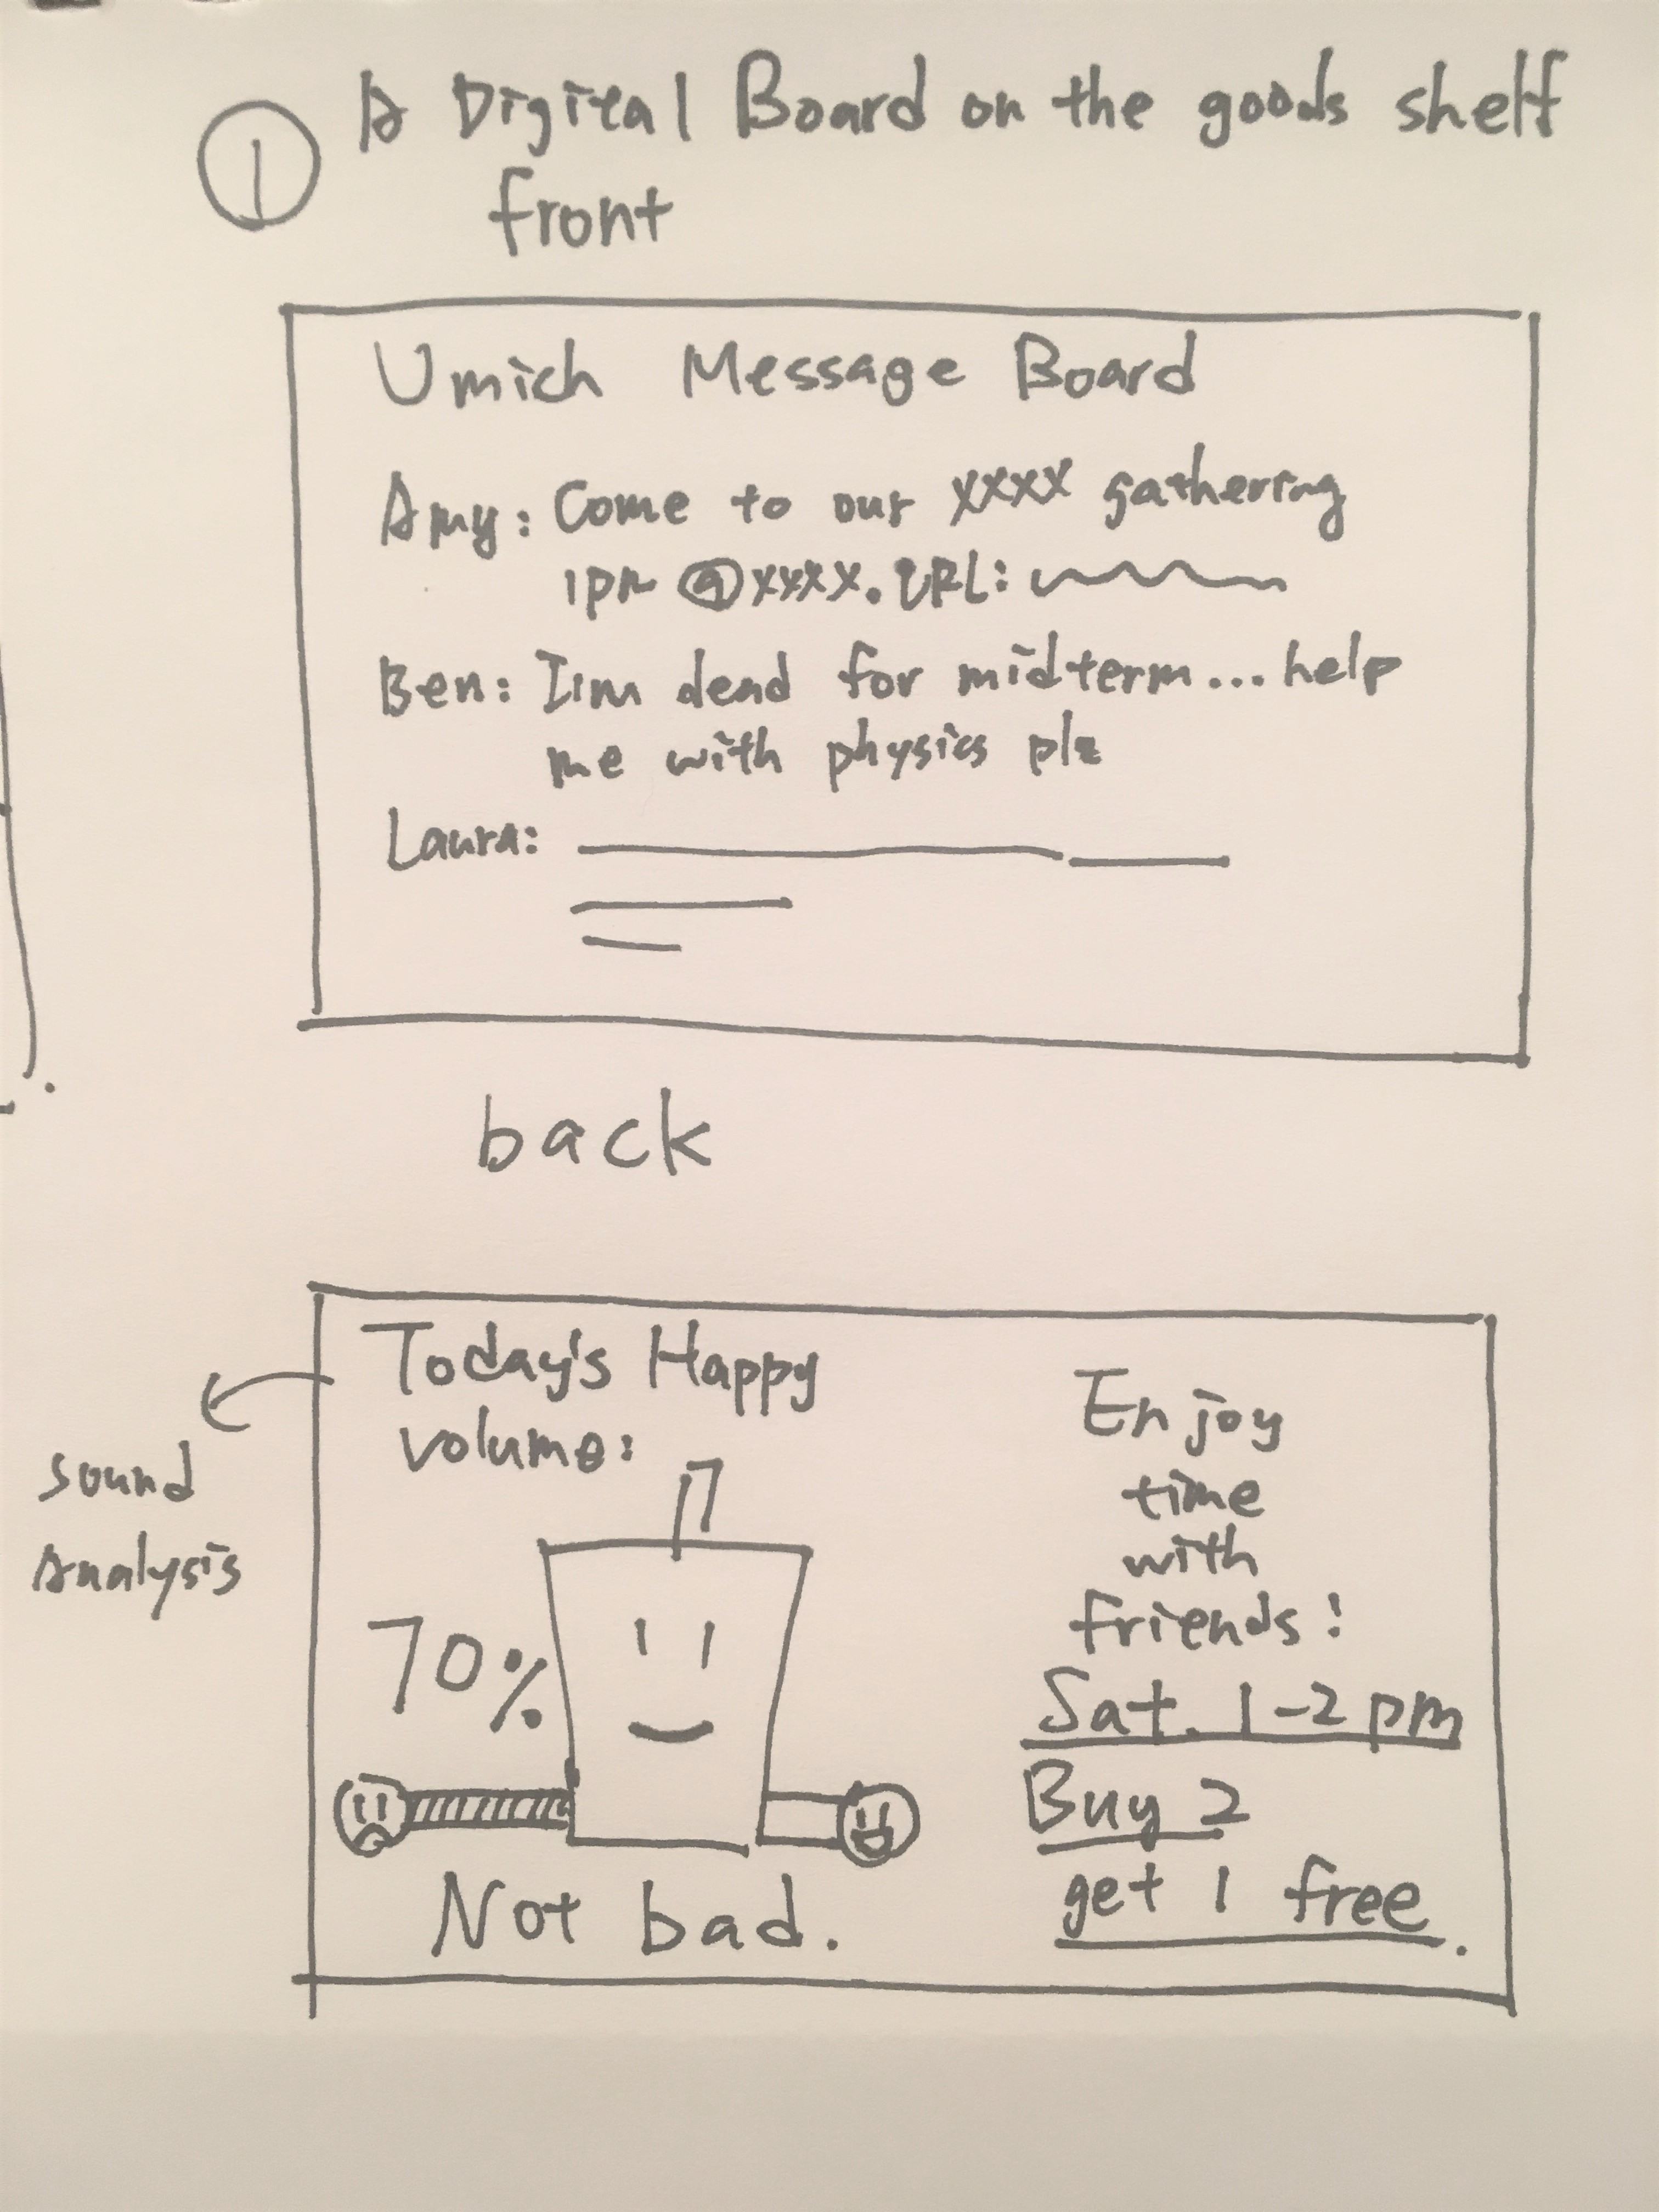 1 A Digital Board on the goods shelf
front
Umich Message Board
Amy: Come to our xxxx gathering
1pm @xxxx. URL:
Ben: I'm dead for midterm... help
me with physics plz
Laura:
back
Today's Happy
volume:
sound
Analysis
70%
Not bad.
Enjoy
time
with
friends!
Sat. 1-2 pm
Buy 2
get 1 free.